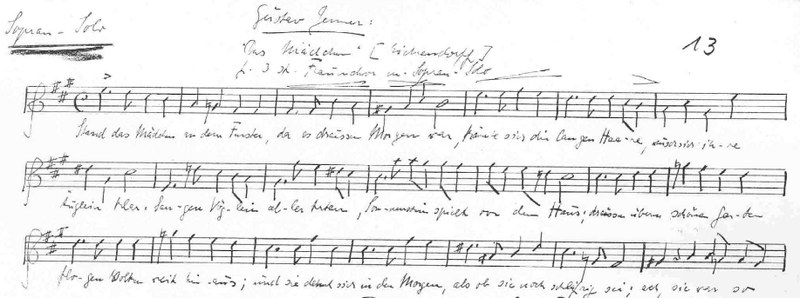 Sopran-Solo
Gustav Jenner:
"Das Mädchen" [Eichendorff]
13
f. 3 st. Frauenchor m. Sopran-Solo
Stand das Mädchen an dem Fenster, da es draussen Morgen war, kämmte sich die langen Haa-re, wusch sich ih-re
Äuglein klar. San-gen Vög-lein al-ler Arten, Son-nenschein spielt vor dem Haus; draussen überm schönen Gar-ten
flo-gen Wolken weit hin-aus; und sie dehnt sich in den Morgen, als ob sie noch schläfrig sei; ach, sie war so